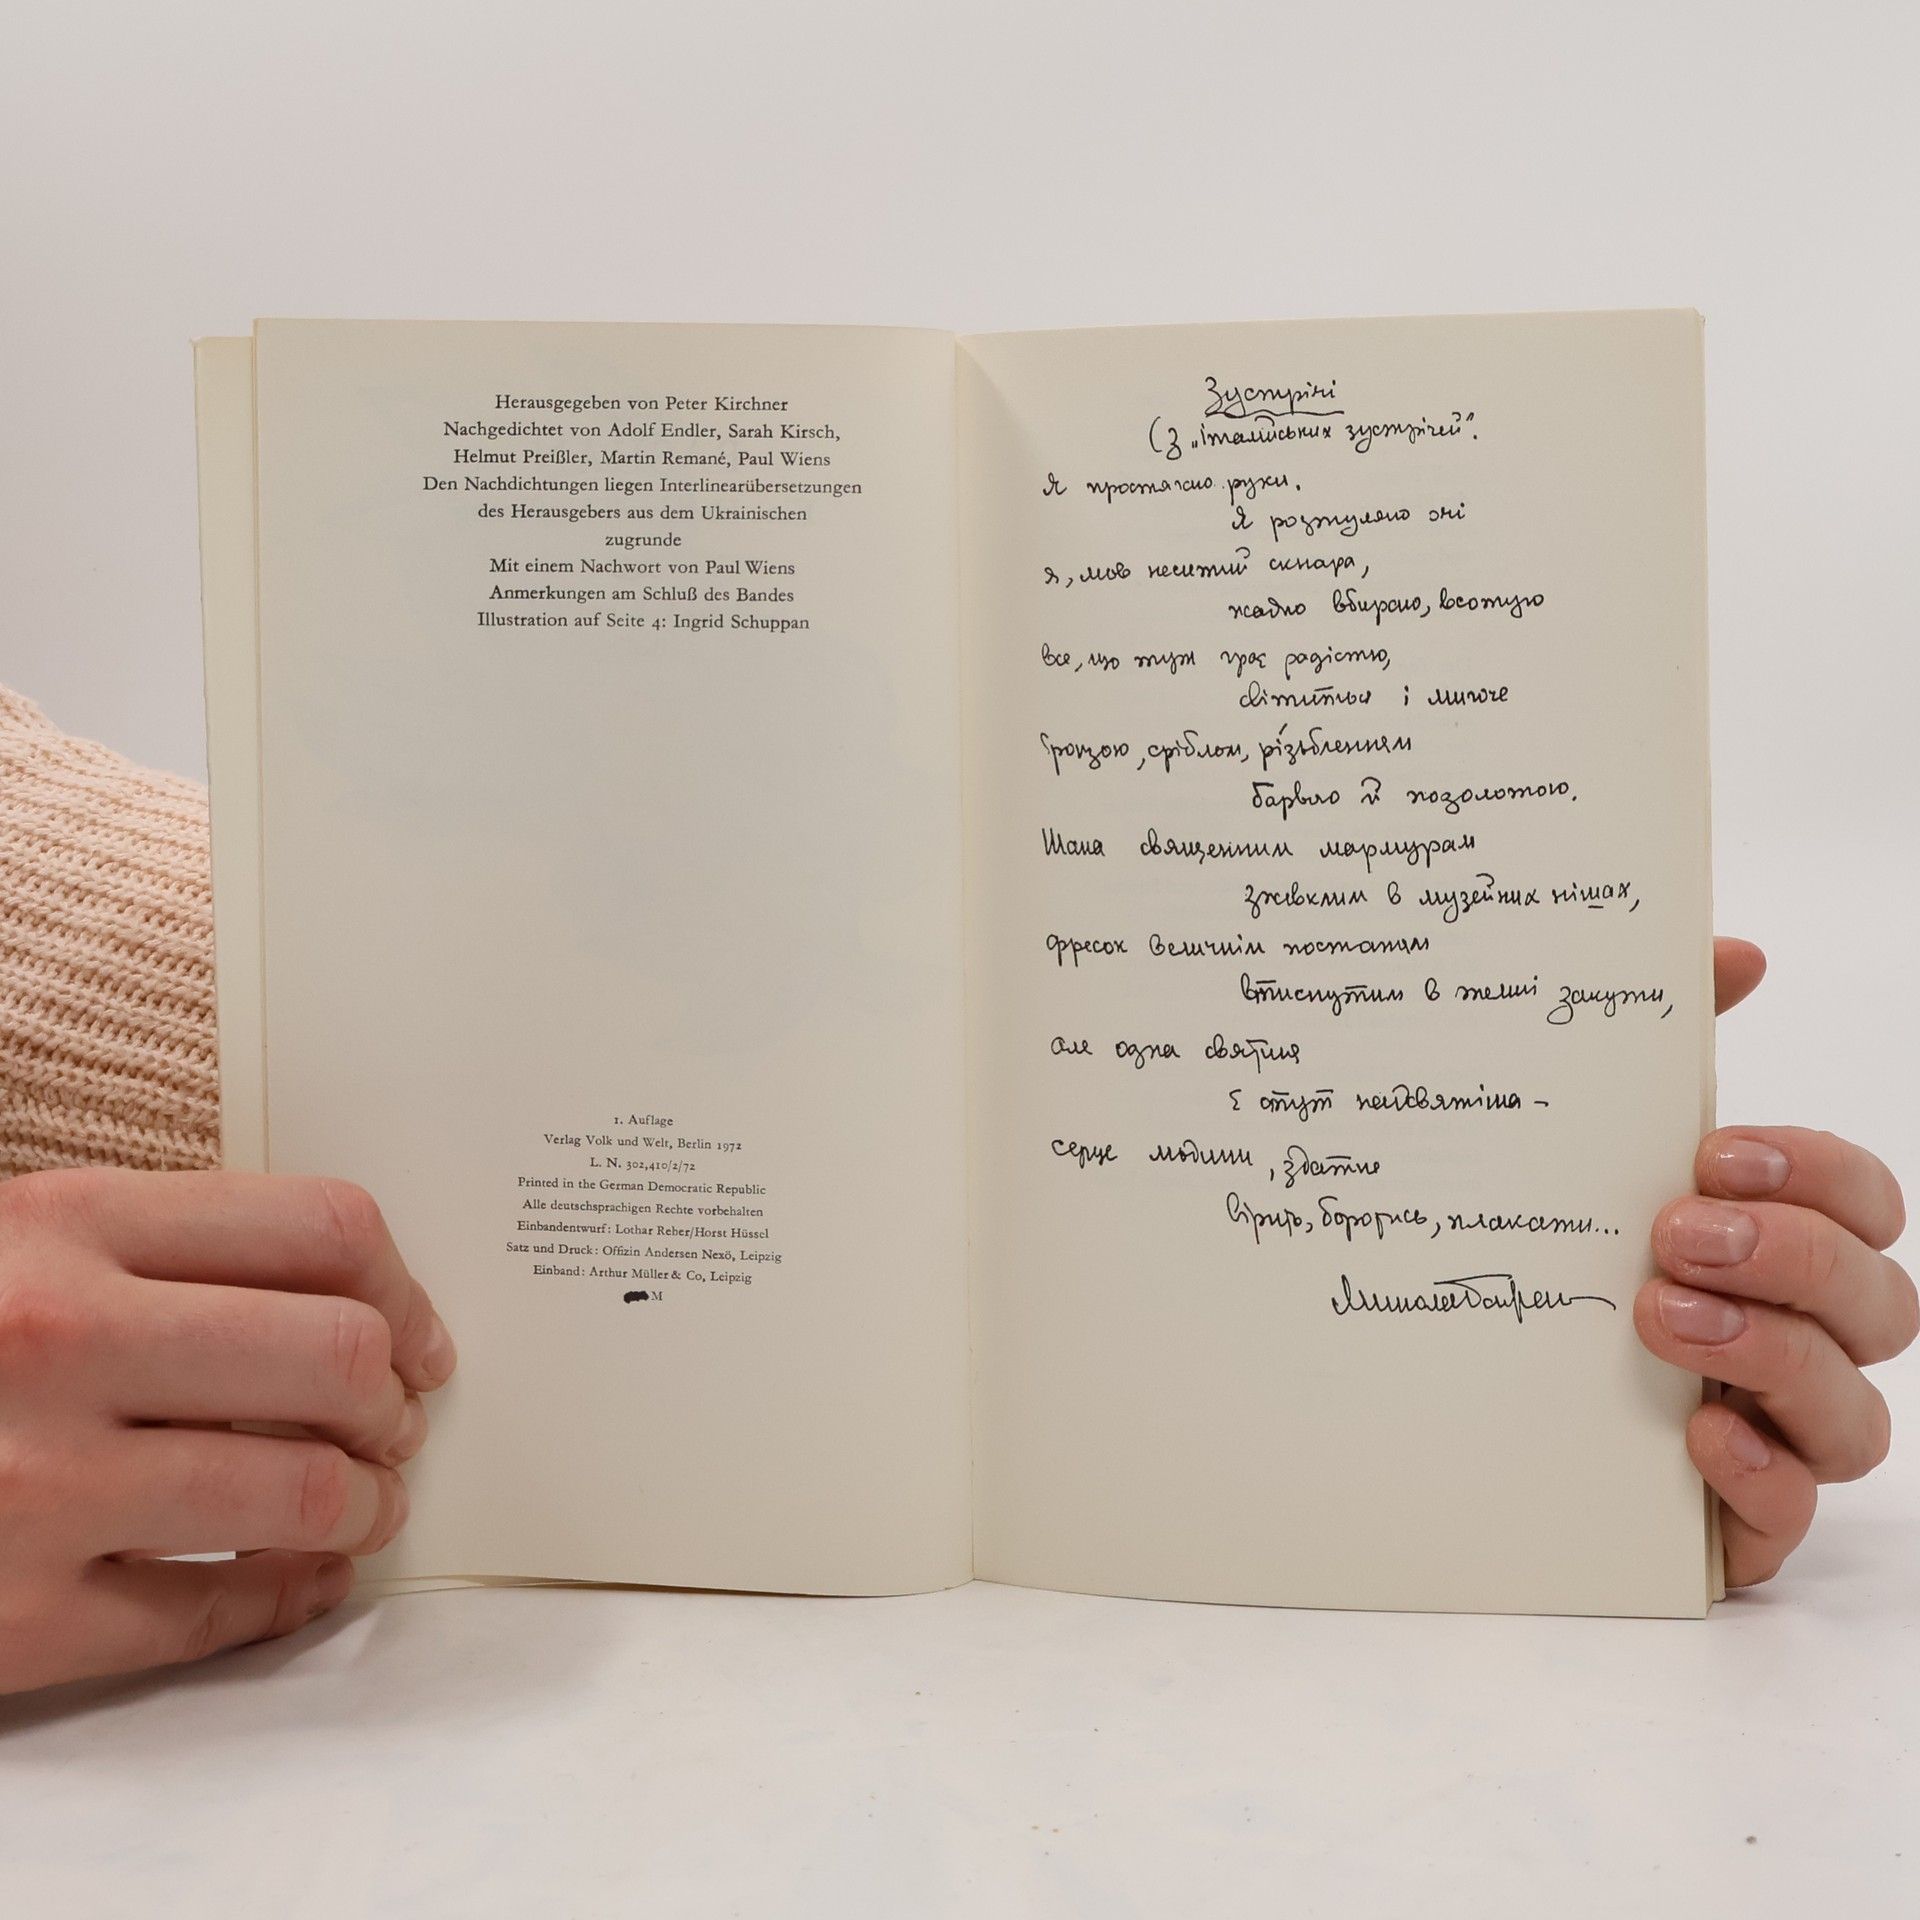 Herausgegeben von Peter Kirchner
Nachgedichtet von Adolf Endler, Sarah Kirsch,
Helmut Preißler, Martin Remané, Paul Wiens
Den Nachdichtungen liegen Interlinearübersetzungen
des Herausgebers aus dem Ukrainischen
zugrunde
Mit einem Nachwort von Paul Wiens
Anmerkungen am Schluß des Bandes
Illustration auf Seite 4: Ingrid Schuppan
1. Auflage
Verlag Volk und Welt, Berlin 1972
L. N. 302,410/2/72
Printed in the German Democratic Republic
Alle deutschsprachigen Rechte vorbehalten
Einbandentwurf: Lothar Reber/Horst Hüssel
Satz und Druck: Offizin Andersen Nexö, Leipzig
Einband: Arthur Müller & Co, Leipzig
M
Зустрічі
(З „італійських зустрічей".
Я простягаю руки.
Я розтуляю очі
я, мов неситий скнара,
жадно вбираю, всотую
все, що тут грає радістю,
світиться і миготе
бронзою, сріблом, різьбленням
барвою й позолотою.
Шана священним мармурам
зжовклим в музейних нішах,
фресок величнім постатям
втиснутим в темні закути,
але одна святиня
Є отут найсвятіша –
серце людини, здатне
вірить, боротись, плакати...
Микола Бажан